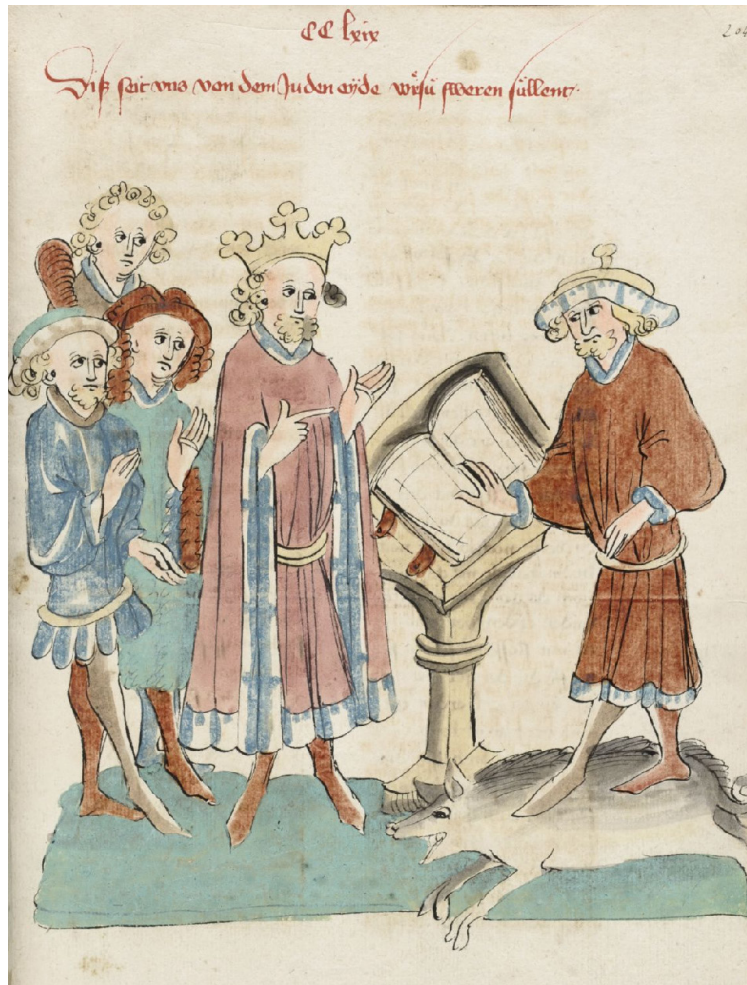 CC lxix
204
Diß seit vns von dem Juden eyde wie sü sweren süllent